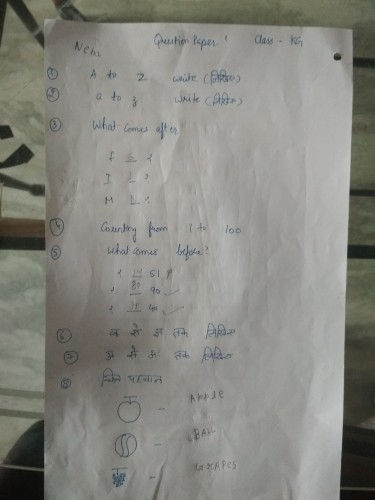 Question Paper : Class - KG
① A to Z write (लिखिए)
② a to z write (लिखिए)
③ What comes after
f
I
M
④ Counting from 1 to 100
⑤ What comes before:
51
90
40
⑥ क से ज्ञ तक लिखिए
⑦ अ से अः तक लिखिए
चित्र पहचान
- APPLE
- BALL
- GRAPES